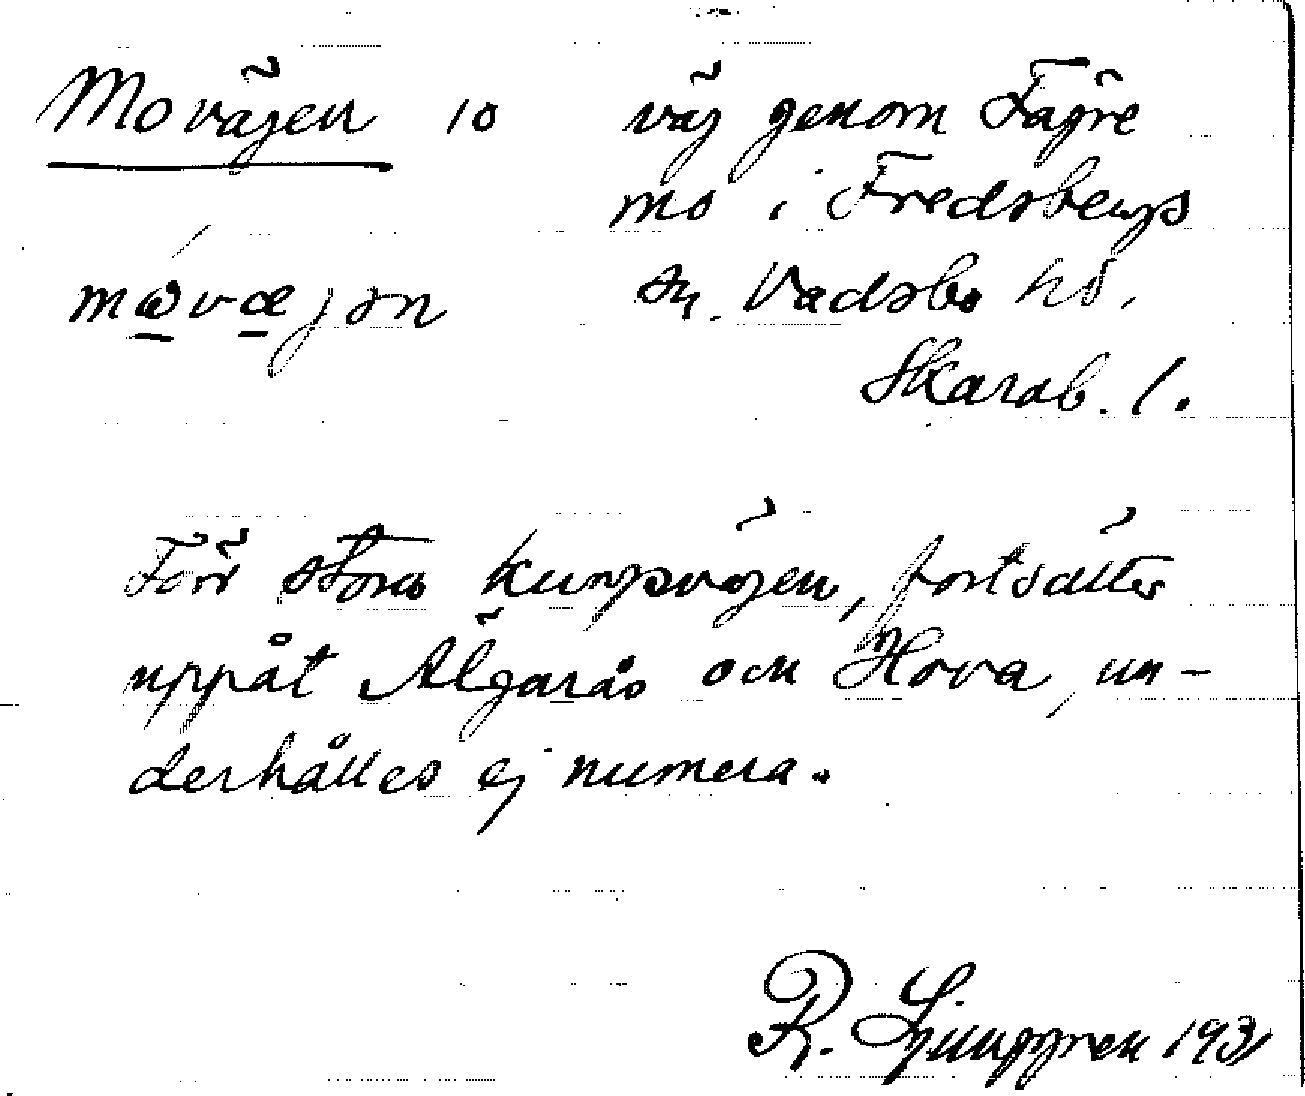 Movägen 10 väg genom Fägre
mo i Fredsbergs
mωvæjən sn. Vadsbo hd.
Skarab. l.
Förr stora kungsvägen, fortsätter
uppåt Älgarås och Hova, un-
derhålles ej numera.
R. Ljunggren 1931